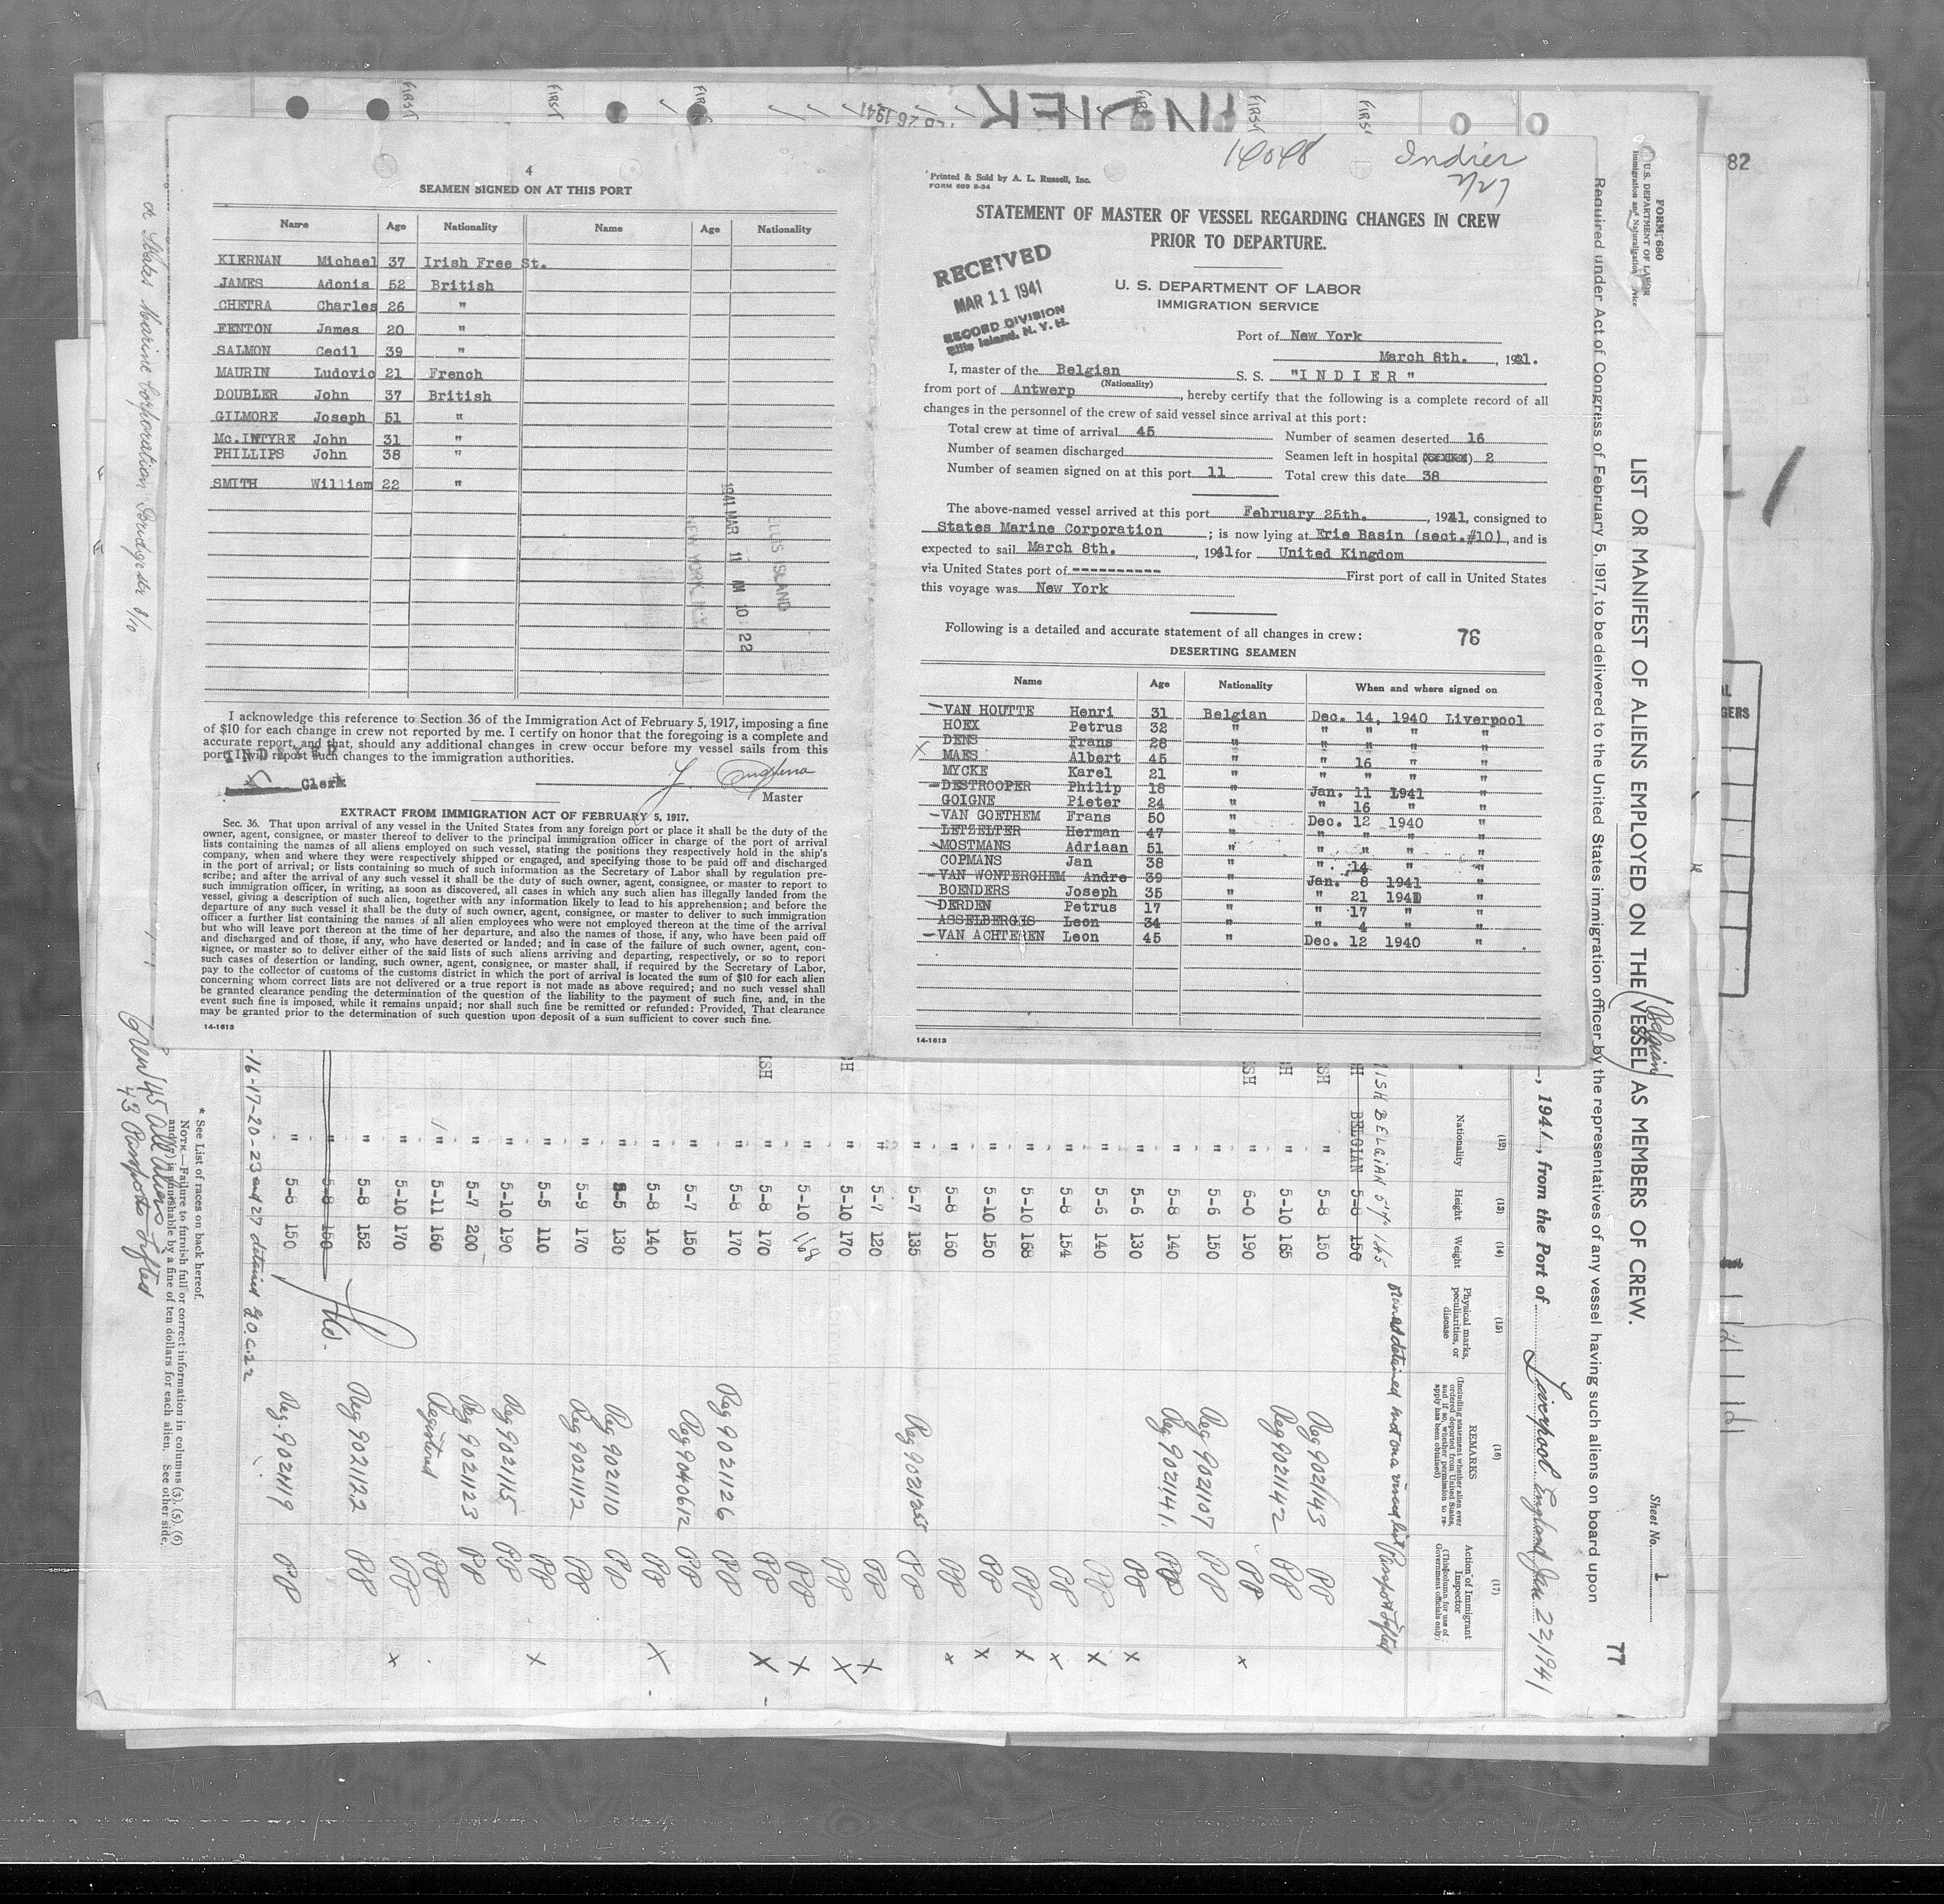 4
SEAMEN SIGNED ON AT THIS PORT
Name Age Nationality Name Age Nationality
KIERNAN Michael 37 Irish Free St.
JAMES Adonis 52 British
CHETRA Charles 26 "
FENTON James 20 "
SALMON Cecil 39 "
MAURIN Ludovic 21 French
DOUBLER John 37 British
GILMORE Joseph 51 "
Mc.INTYRE John 31 "
PHILLIPS John 38 "
SMITH William 22 "
1941 MAR 11 AM 10:22
ELLIS ISLAND
NEW YORK, N.Y.
I acknowledge this reference to Section 36 of the Immigration Act of February 5, 1917, imposing a fine
of $10 for each change in crew not reported by me. I certify on honor that the foregoing is a complete and
accurate report, and that, should any additional changes in crew occur before my vessel sails from this
port, I will report such changes to the immigration authorities.
INDEXED
Clerk
Master
EXTRACT FROM IMMIGRATION ACT OF FEBRUARY 5, 1917.
Sec. 36. That upon arrival of any vessel in the United States from any foreign port or place it shall be the duty of the
owner, agent, consignee, or master thereof to deliver to the principal immigration officer in charge of the port of arrival
lists containing the names of all aliens employed on such vessel, stating the positions they respectively hold in the ship's
company, when and where they were respectively shipped or engaged, and specifying those to be paid off and discharged
in the port of arrival; or lists containing so much of such information as the Secretary of Labor shall by regulation pre-
scribe; and after the arrival of any such vessel it shall be the duty of such owner, agent, consignee, or master to report to
such immigration officer, in writing, as soon as discovered, all cases in which any such alien has illegally landed from the
vessel, giving a description of such alien, together with any information likely to lead to his apprehension; and before the
departure of any such vessel it shall be the duty of such owner, agent, consignee, or master to deliver to such immigration
officer a further list containing the names of all alien employees who were not employed thereon at the time of the arrival
but who will leave port thereon at the time of her departure, and also the names of those, if any, who have been paid off
and discharged and of those, if any, who have deserted or landed; and in case of the failure of such owner, agent, con-
signee, or master so to deliver either of the said lists of such aliens arriving and departing, respectively, or so to report
such cases of desertion or landing, such owner, agent, consignee, or master shall, if required by the Secretary of Labor,
pay to the collector of customs of the customs district in which the port of arrival is located the sum of $10 for each alien
concerning whom correct lists are not delivered or a true report is not made as above required; and no such vessel shall
be granted clearance pending the determination of the question of the liability to the payment of such fine, and, in the
event such fine is imposed, while it remains unpaid; nor shall such fine be remitted or refunded: Provided, That clearance
may be granted prior to the determination of such question upon deposit of a sum sufficient to cover such fine.
14-1613
Indier
2/27
Printed & Sold by A. L. Russell, Inc.
FORM 689 9-34
STATEMENT OF MASTER OF VESSEL REGARDING CHANGES IN CREW
PRIOR TO DEPARTURE.
RECEIVED
MAR 11 1941
RECORD DIVISION
Ellis Island, N. Y. H.
U. S. DEPARTMENT OF LABOR
IMMIGRATION SERVICE
Port of New York
March 8th. , 1941.
I, master of the Belgian S. S. "INDIER"
(Nationality)
from port of Antwerp , hereby certify that the following is a complete record of all
changes in the personnel of the crew of said vessel since arrival at this port:
Total crew at time of arrival 45 Number of seamen deserted 16
Number of seamen discharged Seamen left in hospital 2
Number of seamen signed on at this port 11 Total crew this date 38
The above-named vessel arrived at this port February 25th. , 1941, consigned to
States Marine Corporation ; is now lying at Erie Basin (sect.#10) , and is
expected to sail March 8th. , 1941 for United Kingdom
via United States port of ---------- First port of call in United States
this voyage was New York
Following is a detailed and accurate statement of all changes in crew: 76
DESERTING SEAMEN
Name Age Nationality When and where signed on
VAN HOUTTE Henri 31 Belgian Dec. 14, 1940 Liverpool
HOEX Petrus 32 " " " " "
DENS Frans 28 " " " " "
MAES Albert 45 " " 16 " "
MYCKE Karel 21 " " " " "
DESTROOPER Philip 18 " Jan. 11 1941 "
GOIGNE Pieter 24 " " 16 " "
VAN GOETHEM Frans 50 " Dec. 12 1940 "
LETZELTER Herman 47 " " " " "
MOSTMANS Adriaan 51 " " " " "
COPMANS Jan 38 " " 14 " "
VAN WONTERGHEM Andre 39 " Jan. 8 1941 "
BOENDERS Joseph 35 " " 21 1941 "
DERDEN Petrus 17 " " 17 " "
ASSELBERGHS Leon 34 " " 4 " "
VAN ACHTEREN Leon 45 " Dec. 12 1940 "
14-1613
FORM 680
U.S. DEPARTMENT OF LABOR
Immigration and Naturalization Service
LIST OR MANIFEST OF ALIENS EMPLOYED ON THE VESSEL AS MEMBERS OF CREW.
(Belgian)
Sheet No. 1
77
Required under Act of Congress of February 5, 1917, to be delivered to the United States immigration officer by the representatives of any vessel having such aliens on board upon
, 1941, from the Port of Liverpool England Jan 22, 1941
(12) Nationality
(13) Height
(14) Weight
(15) Physical marks, peculiarities, or disease
(16) REMARKS (Including statement whether alien ever ordered deported from United States, and if so, whether permission to reapply has been obtained)
(17) Action of Immigrant Inspector (This column for use of Government officials only)
BELGIAN 5-8 150
" 5-8 150 Reg 9021143
" 5-10 165 Reg 9021142
" 6-0 190
" 5-6 150 Reg 9021107
" 5-8 140 Reg 9021141
" 5-6 130
" 5-6 140
" 5-8 154
" 5-10 168
" 5-10 150
" 5-8 160
" 5-7 135
" 5-7 120
" 5-10 170
" 5-10 168
" 5-8 170
" 5-8 170 Reg 9021126
" 5-7 150 Reg 9040612
" 5-8 140
" 5-5 130 Reg 9021110
" 5-9 170 Reg 9021112
" 5-5 110
" 5-10 190 Reg 9021115
" 5-7 200 Reg 9021123
" 5-11 160 Registered
" 5-10 170
" 5-8 152 Reg 9021122
" 5-8 150
" 5-8 150 Reg 9021119
16-17-20-23 and 27 detained
* See List of races on back hereof.
NOTE.—Failure to furnish full or correct information in columns (3), (5), (6)
and (7) is punishable by a fine of ten dollars for each alien. See other side.
Crew 45 all aliens
43 Passports lifted
States Marine Corporation
INDIER
FIRST
FIRST
FIRST
FIRST
FIRST
FIRST
82